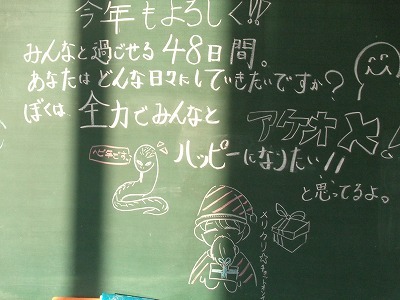 今年もよろしく!!
みんなと過ごせる48日間。
あなたはどんな日々にしていきたいですか?
ぼくは全力でみんなと
ハッピーになりたい!!
と思ってるよ。
アケオメ!
ヘビ年です。
メリクリ